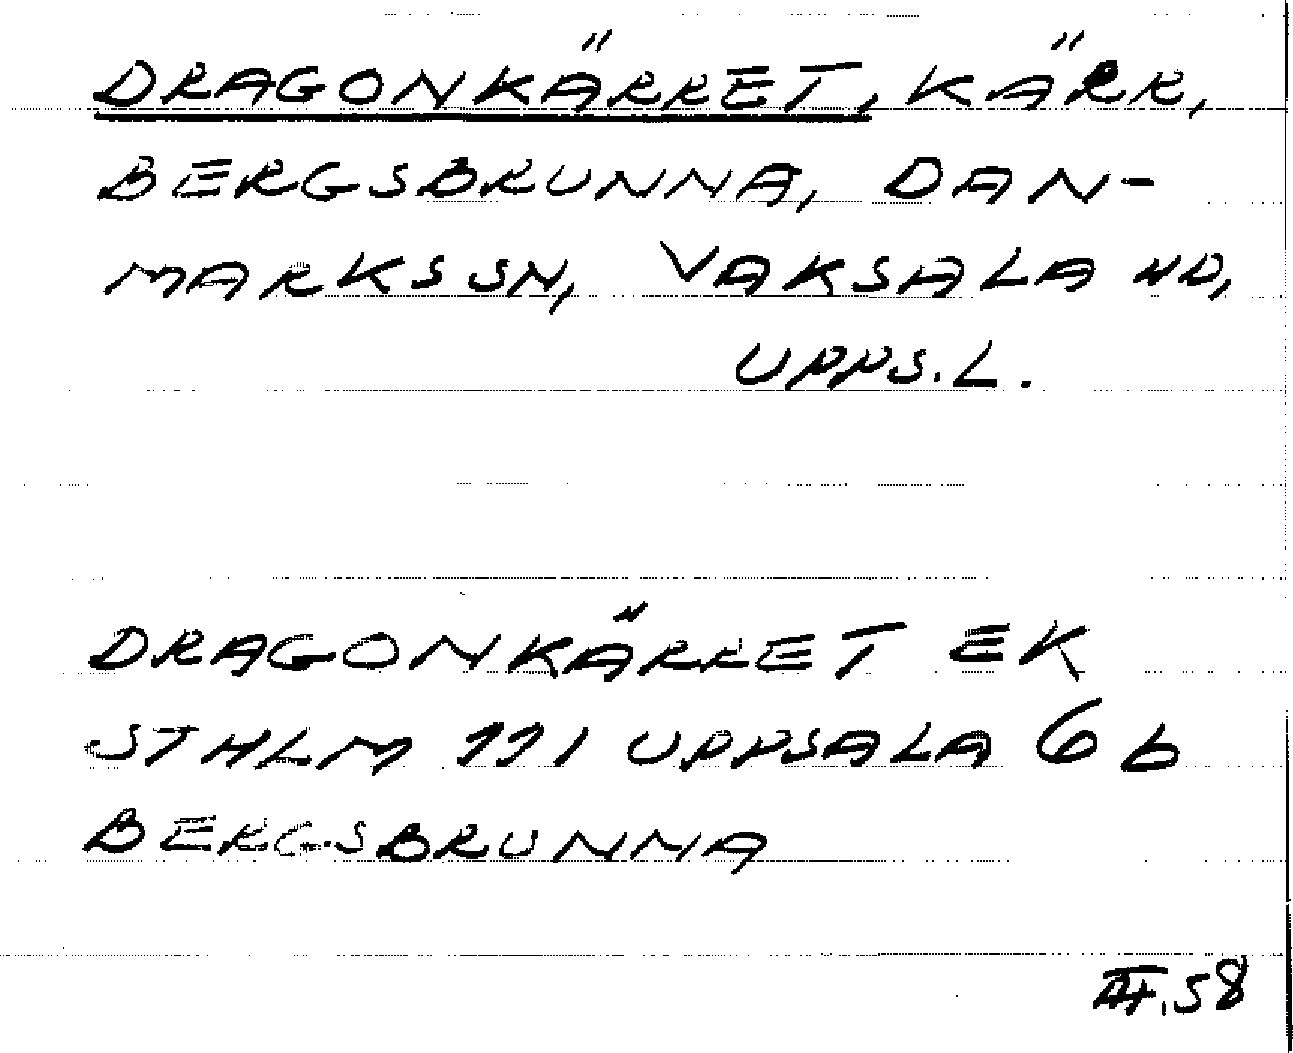 DRAGONKÄRRET, KÄRR,
BERGSBRUNNA, DAN-
MARKS SN, VAKSALA HD,
UPPS. L.
DRAGONKÄRRET EK
STHLM 111 UPPSALA 6 b
BERGSBRUNNA
58